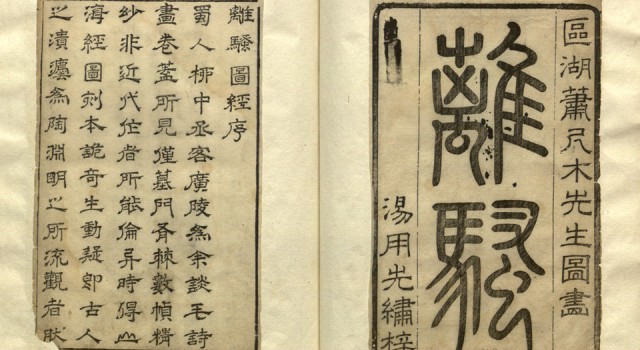 區湖蕭尺木先生圖畫
離騷
湯用先繡梓
離騷圖經序
蜀人柳中丞客廣陵爲余談毛詩
畫卷蓋所見僅墓門斧棘數幀精
妙非近代佐者所能倫舁時得山
海經圖刻本詭奇生動疑卽古人
之漬瀋爲陶淵明之所流觀者肰